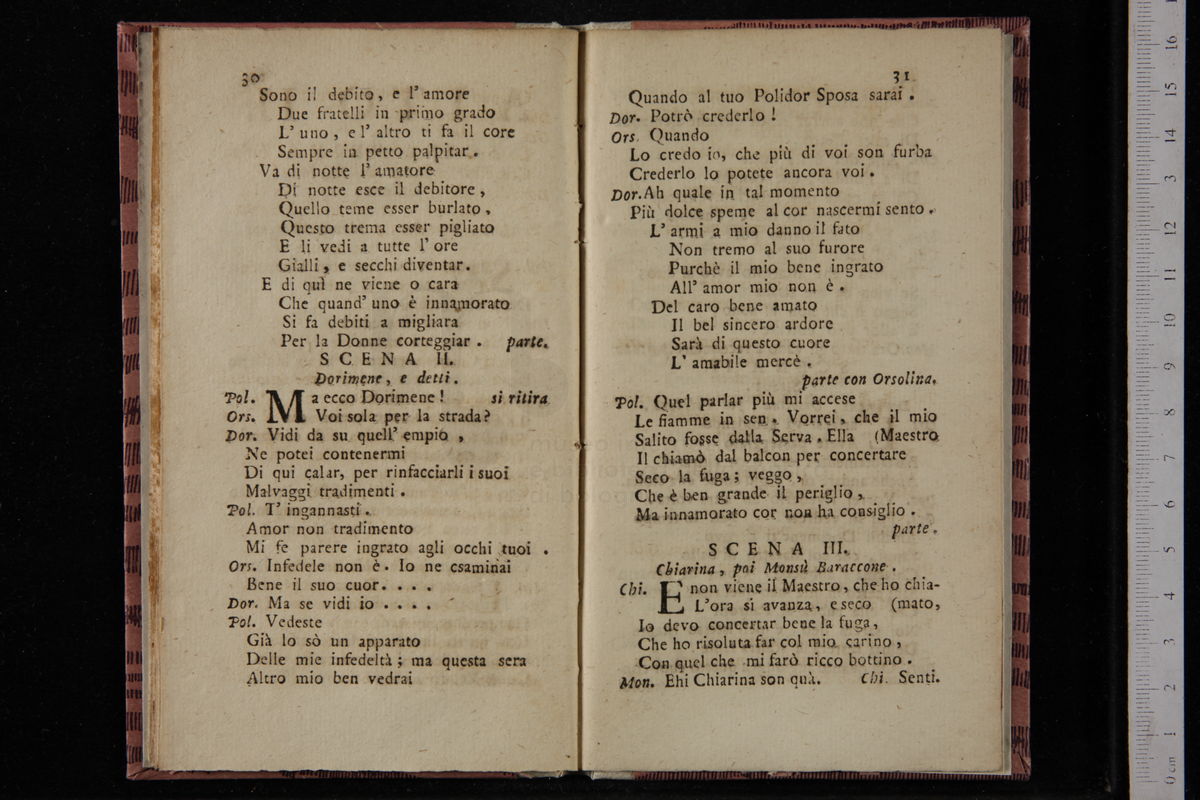 30
Sono il debito, e l' amore
Due fratelli in primo grado
L' uno, e l' altro ti fa il core
Sempre in petto palpitar.
Va di notte l' amatore
Di notte esce il debitore,
Quello teme esser burlato,
Questo trema esser pigliato
E li vedi a tutte l' ore
Gialli, e secchi diventar.
E di quì ne viene o cara
Che quand' uno è innamorato
Si fa debiti a migliara
Per la Donne corteggiar. parte.
SCENA II.
Dorimene, e detti.
Pol. Ma ecco Dorimene! si ritira
Ors. Voi sola per la strada?
Dor. Vidi da su quell' empio,
Ne potei contenermi
Di qui calar, per rinfacciarli i suoi
Malvaggi tradimenti.
Pol. T' ingannasti.
Amor non tradimento
Mi fe parere ingrato agli occhi tuoi.
Ors. Infedele non è. Io ne esaminai
Bene il suo cuor. . . .
Dor. Ma se vidi io . . . .
Pol. Vedeste
Già lo sò un apparato
Delle mie infedeltà; ma questa sera
Altro mio ben vedrai
31
Quando al tuo Polidor Sposa sarai.
Dor. Potrò crederlo!
Ors. Quando
Lo credo io, che più di voi son furba
Crederlo lo potete ancora voi.
Dor. Ah quale in tal momento
Più dolce speme al cor nascermi sento.
L' armi a mio danno il fato
Non tremo al suo furore
Purchè il mio bene ingrato
All' amor mio non è.
Del caro bene amato
Il bel sincero ardore
Sarà di questo cuore
L' amabile mercè.
parte con Orsolina.
Pol. Quel parlar più mi accese
Le fiamme in sen. Vorrei, che il mio
Salito fosse dalla Serva. Ella (Maestro
Il chiamò dal balcon per concertare
Seco la fuga; veggo,
Che è ben grande il periglio,
Ma innamorato cor non ha consiglio.
parte.
SCENA III.
Chiarina, poi Monsù Baraccone.
Chi. E non viene il Maestro, che ho chia-
L'ora si avanza, e seco (mato,
Io devo concertar bene la fuga,
Che ho risoluta far col mio carino,
Con quel che mi farò ricco bottino.
Mon. Ehi Chiarina son quà. Chi. Senti.